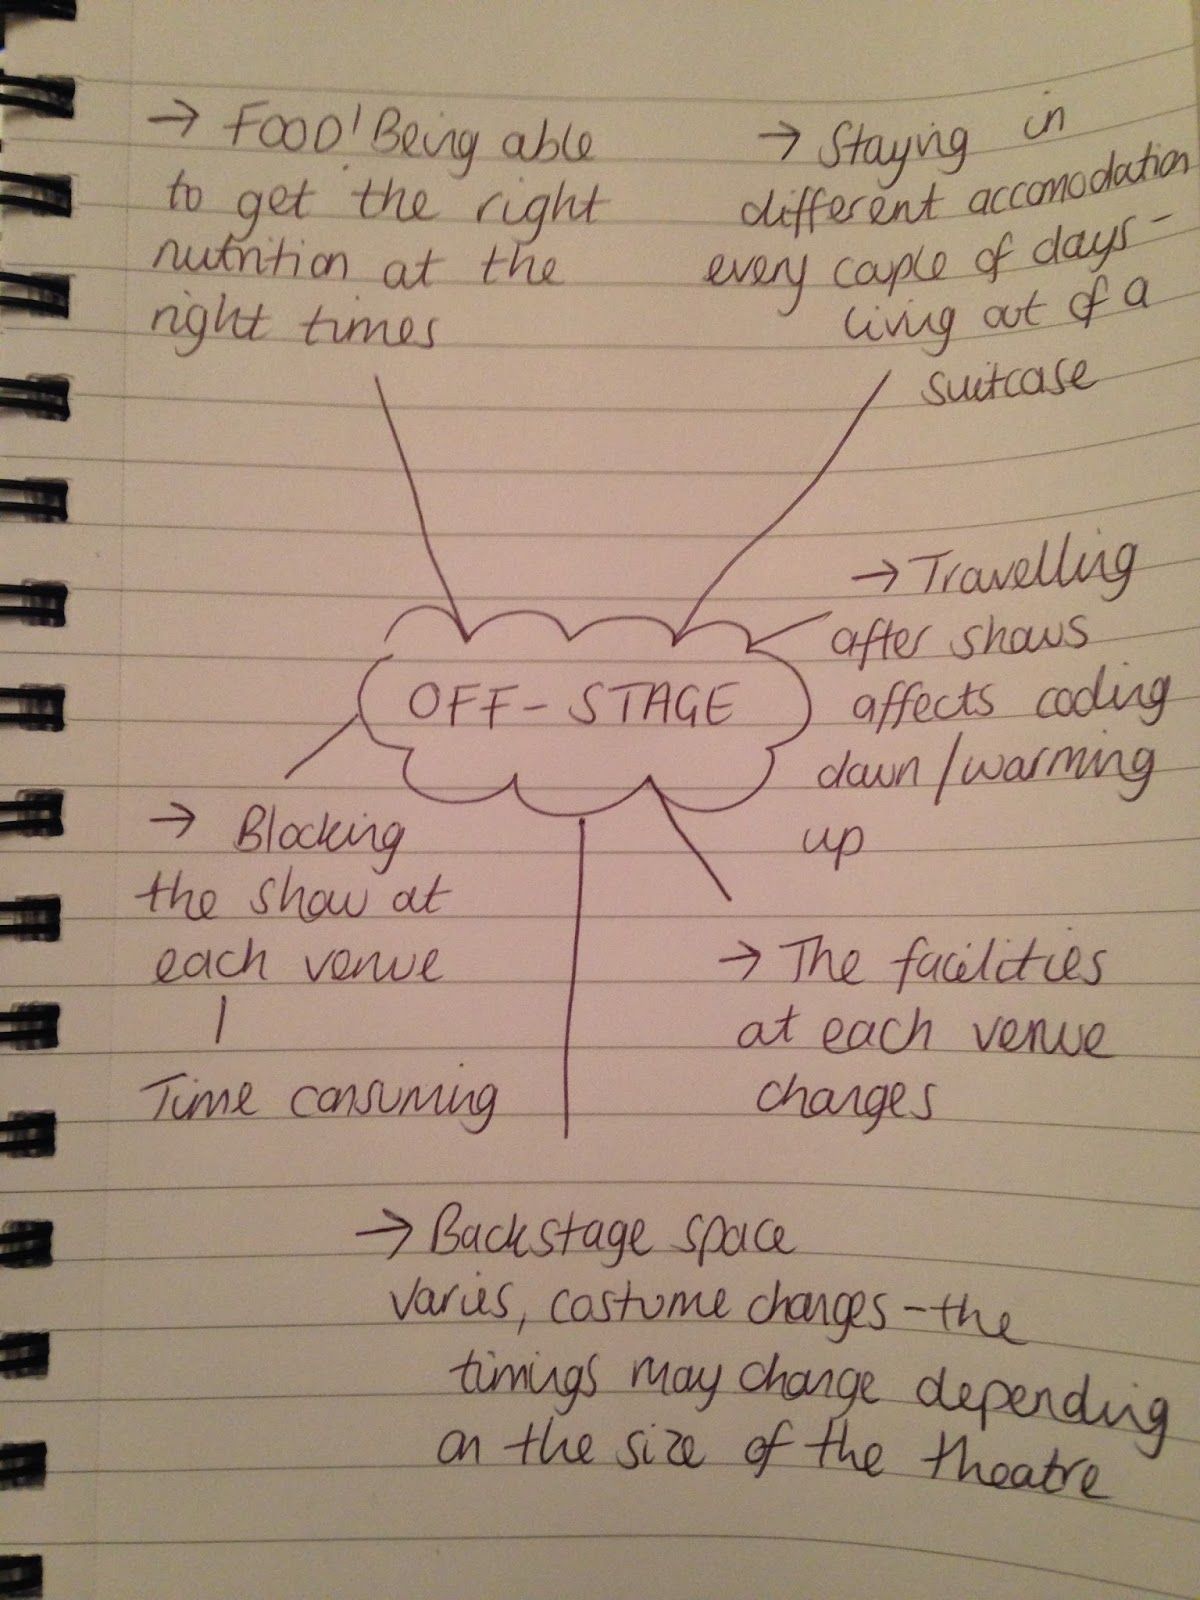 → FOOD! Being able
to get the right
nutrition at the
right times
→ Staying in
different accomodation
every couple of days -
living out of a
suitcase
OFF-STAGE
→ Travelling
after shows
affects cooling
down/warming
up
→ Blocking
the show at
each venue
Time consuming
→ The facilities
at each venue
changes
→ Backstage space
varies, costume changes - the
timings may change depending
on the size of the theatre